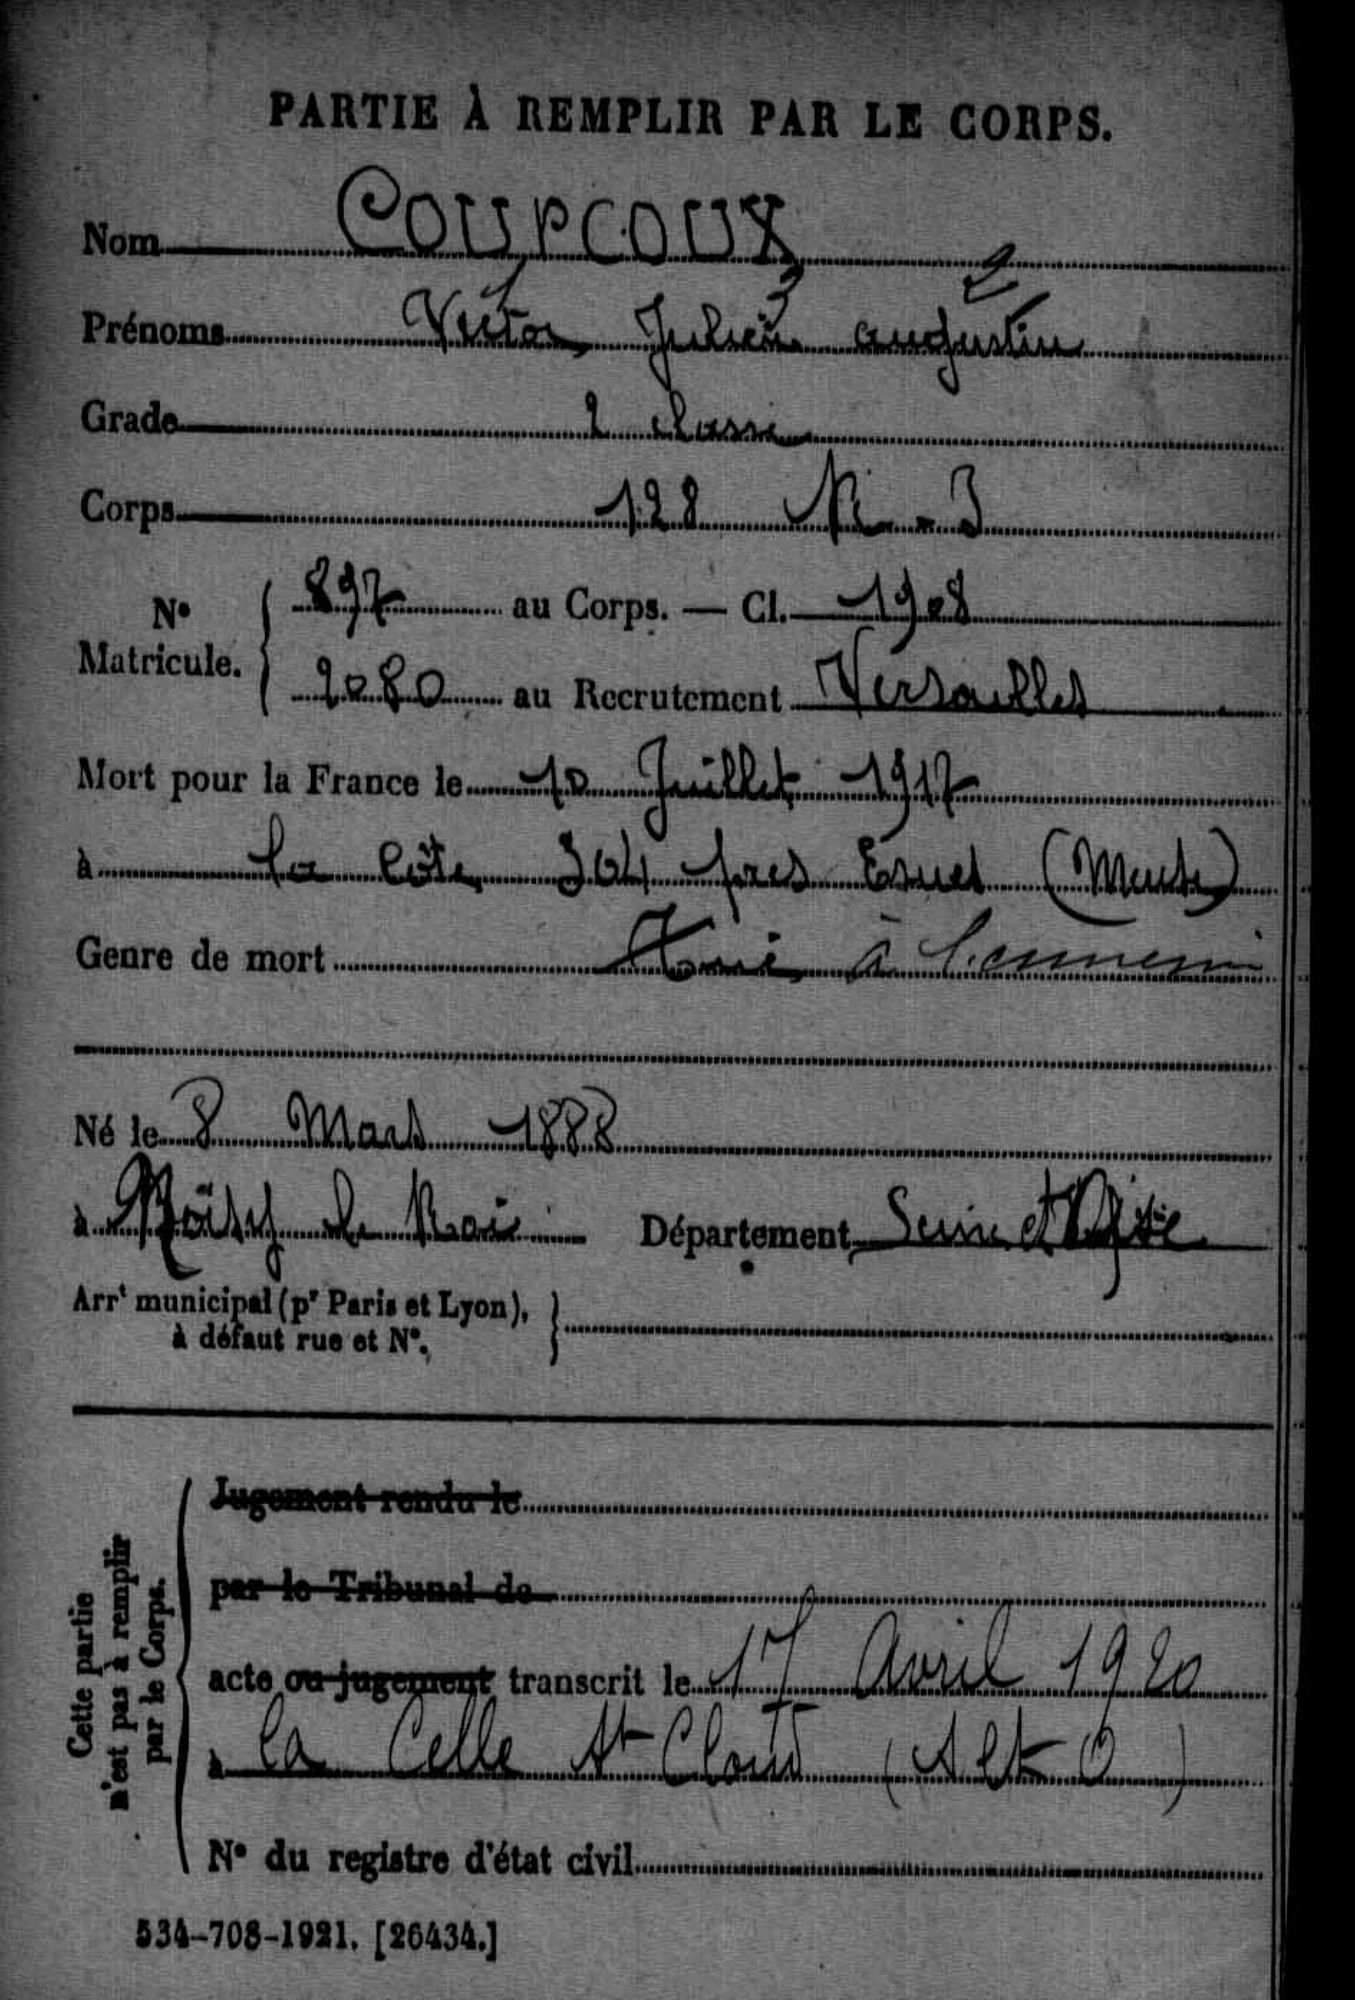 PARTIE À REMPLIR PAR LE CORPS.
Nom COUPCOUX
2
1 3
Prénoms Victor Julien augustin
Grade 2 classe
Corps 128 R. I
N° Matricule. 897 au Corps. — Cl. 1908
2080 au Recrutement Versailles
Mort pour la France le 10 Juillet 1917
à la côte 304 pres Esnes (Meuse)
Genre de mort Tué à l'ennemi
Né le 8 Mars 1888
à Noisy le Roi Département Seine et Oise
Arrt municipal (pr Paris et Lyon),
à défaut rue et N°.
Cette partie
n'est pas à remplir
par le Corps.
Jugement rendu le
par le Tribunal de
acte ou jugement transcrit le 17 Avril 1920
à La Celle St Cloud (S et O)
N° du registre d'état civil
534-708-1921. [26434.]